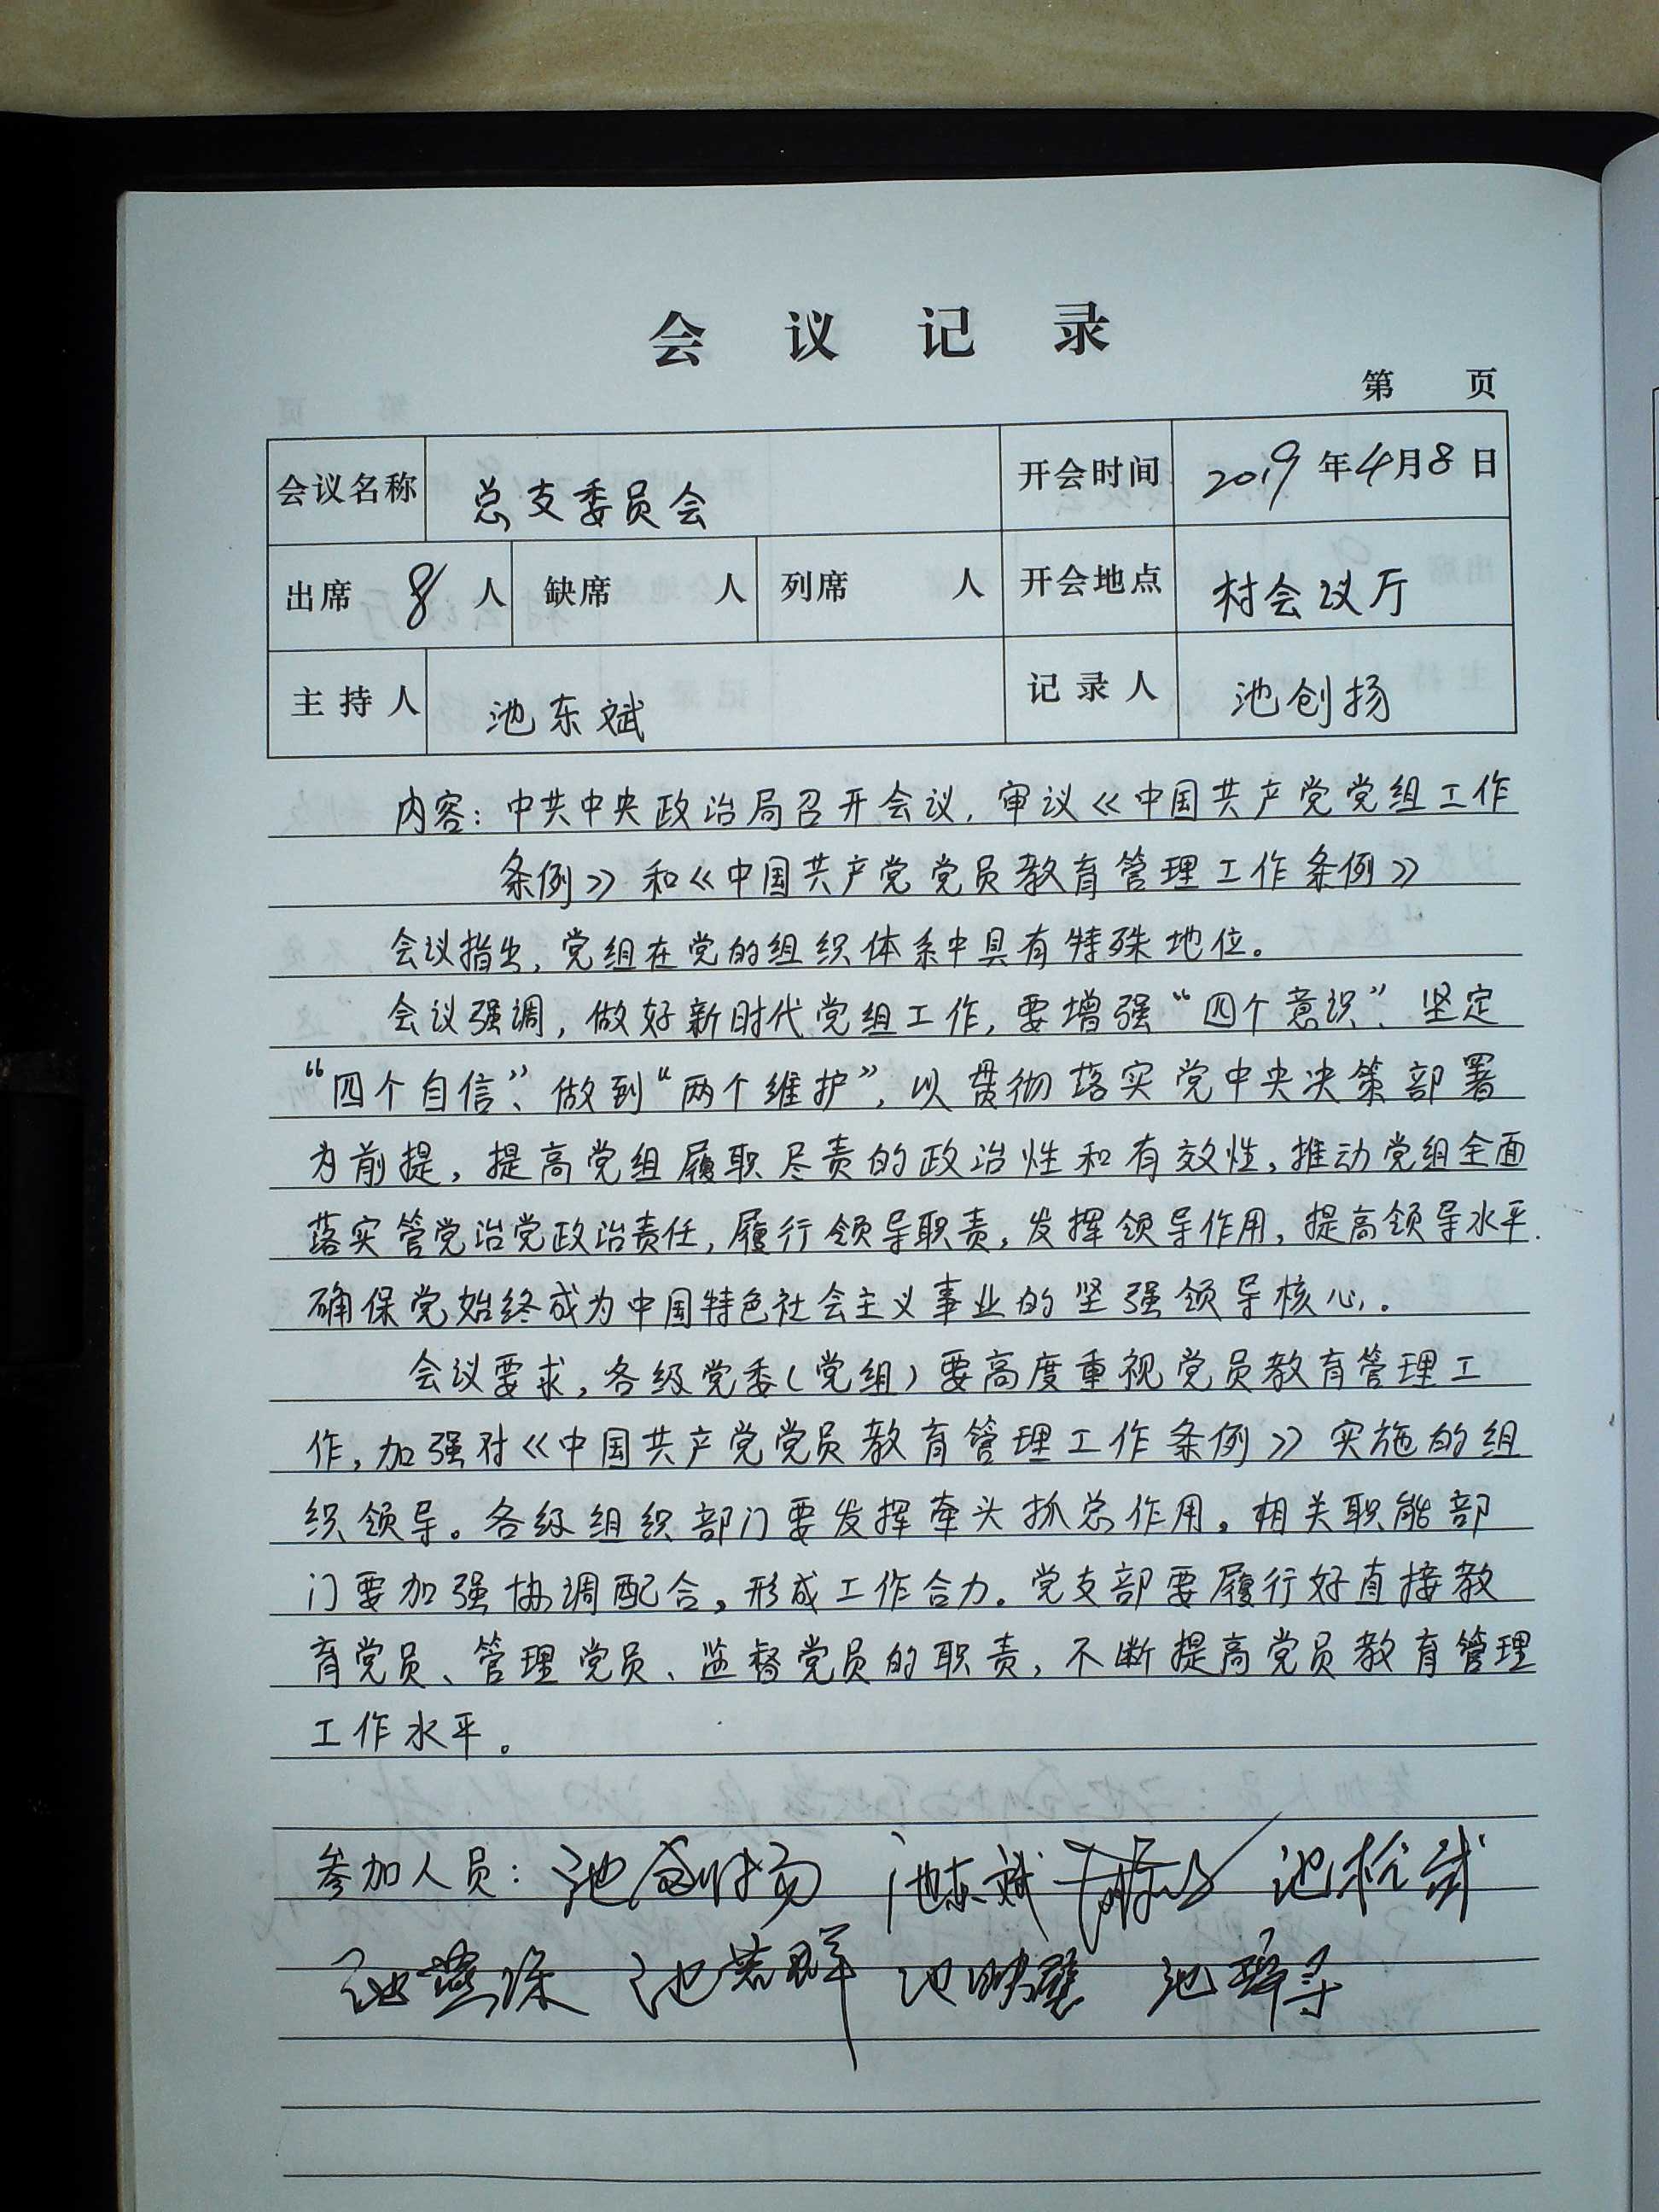 会议记录
第 页
会议名称 总支委员会 开会时间 2019年4月8日
出席 8 人 缺席 人 列席 人 开会地点 村会议厅
主持人 池东斌 记录人 池创扬
内容：中共中央政治局召开会议，审议《中国共产党党组工作
条例》和《中国共产党党员教育管理工作条例》
会议指出，党组在党的组织体系中具有特殊地位。
会议强调，做好新时代党组工作，要增强“四个意识”、坚定
“四个自信”、做到“两个维护”，以贯彻落实党中央决策部署
为前提，提高党组履职尽责的政治性和有效性，推动党组全面
落实管党治党政治责任，履行领导职责，发挥领导作用，提高领导水平.
确保党始终成为中国特色社会主义事业的坚强领导核心.
会议要求，各级党委（党组）要高度重视党员教育管理工
作，加强对《中国共产党党员教育管理工作条例》实施的组
织领导。各级组织部门要发挥牵头抓总作用，相关职能部
门要加强协调配合，形成工作合力。党支部要履行好直接教
育党员、管理党员、监督党员的职责，不断提高党员教育管理
工作水平。
参加人员：池 池东斌 池
池 池 池映 池